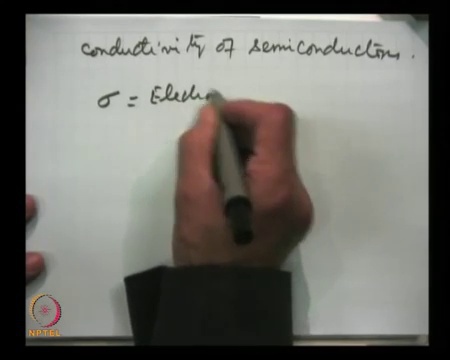 conductivity of semiconductors.
σ = Electro
NPTEL